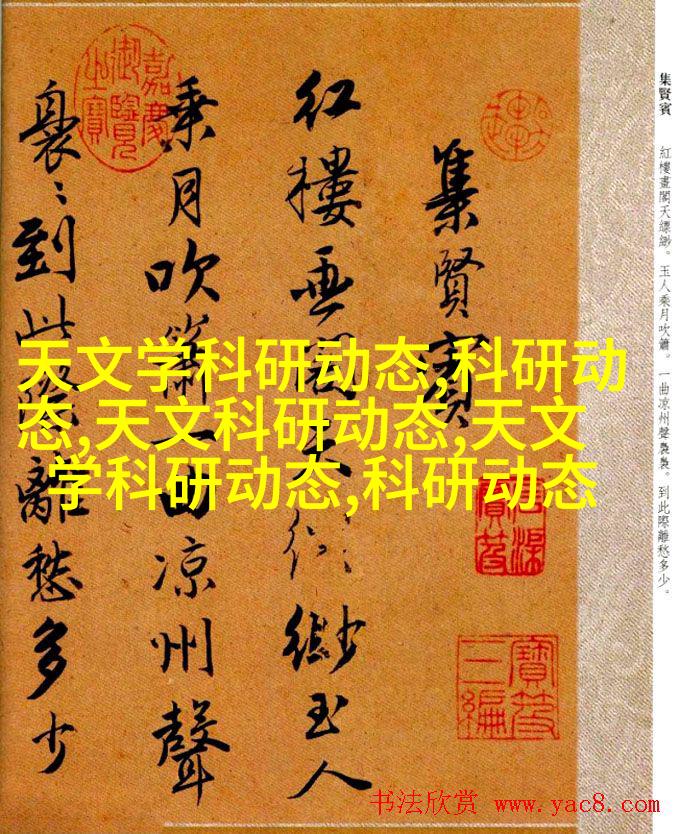 集賢賓
紅樓畫閣天縹緲。玉人乘月吹簫。一曲凉州聲裊裊。到此際離愁多少。
集賢賓
红樓畫閣天縹緲玉人
乘月吹簫一曲凉州聲
裊〻到此際離愁多少
嘉慶御覽之寶
天文学科研动态,科研动
态,天文科研动态,天文
学科研动态,科研动态
寶笈三編
书法欣赏 www.yac8.com